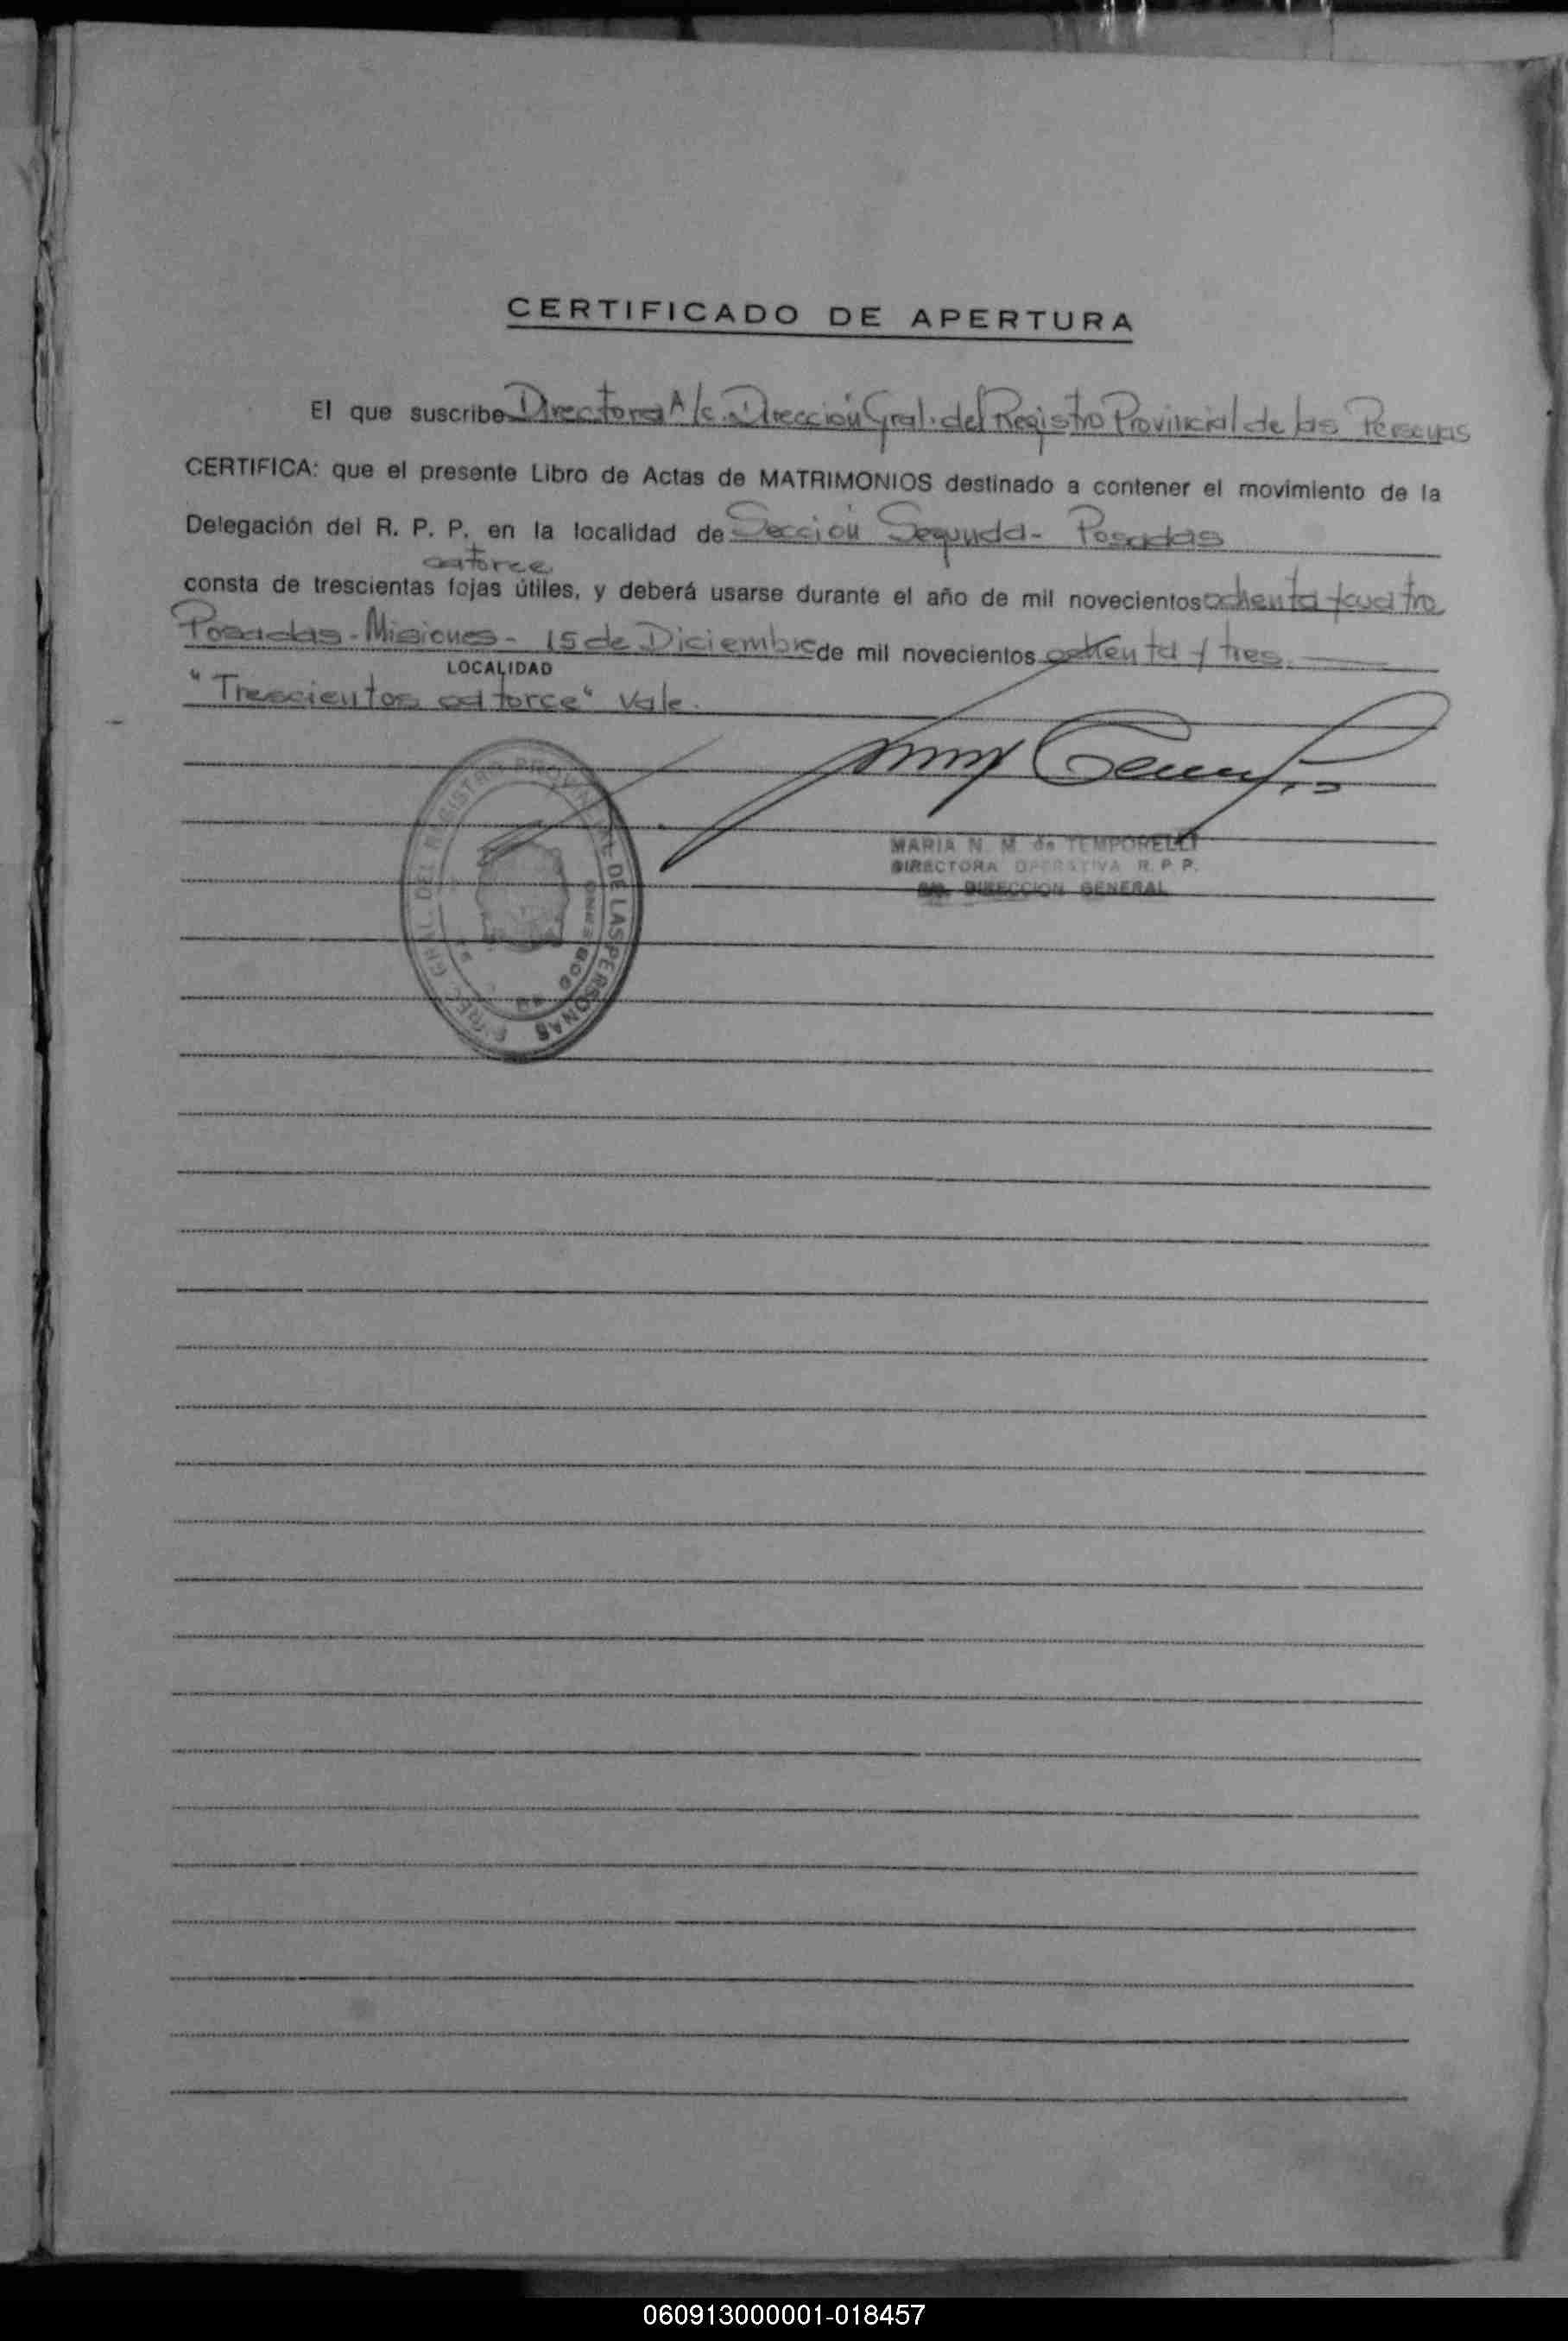 CERTIFICADO DE APERTURA
El que suscribe Directora A/c. Dirección Gral. del Registro Provincial de las Personas
CERTIFICA: que el presente Libro de Actas de MATRIMONIOS destinado a contener el movimiento de la
Delegación del R. P. P. en la localidad de Sección Segunda - Posadas
catorce
consta de trescientas fojas útiles, y deberá usarse durante el año de mil novecientos ochenta y cuatro
Posadas - Misiones - 15 de Diciembre de mil novecientos ochenta y tres
LOCALIDAD
"Trescientos catorce" Vale.
MARIA N. M. de TEMPORELLI
DIRECTORA OPERATIVA R. P. P.
DIRECCION GENERAL
DIREC. GRAL. DEL REGISTRO PROVINCIAL DE LAS PERSONAS
060913000001-018457